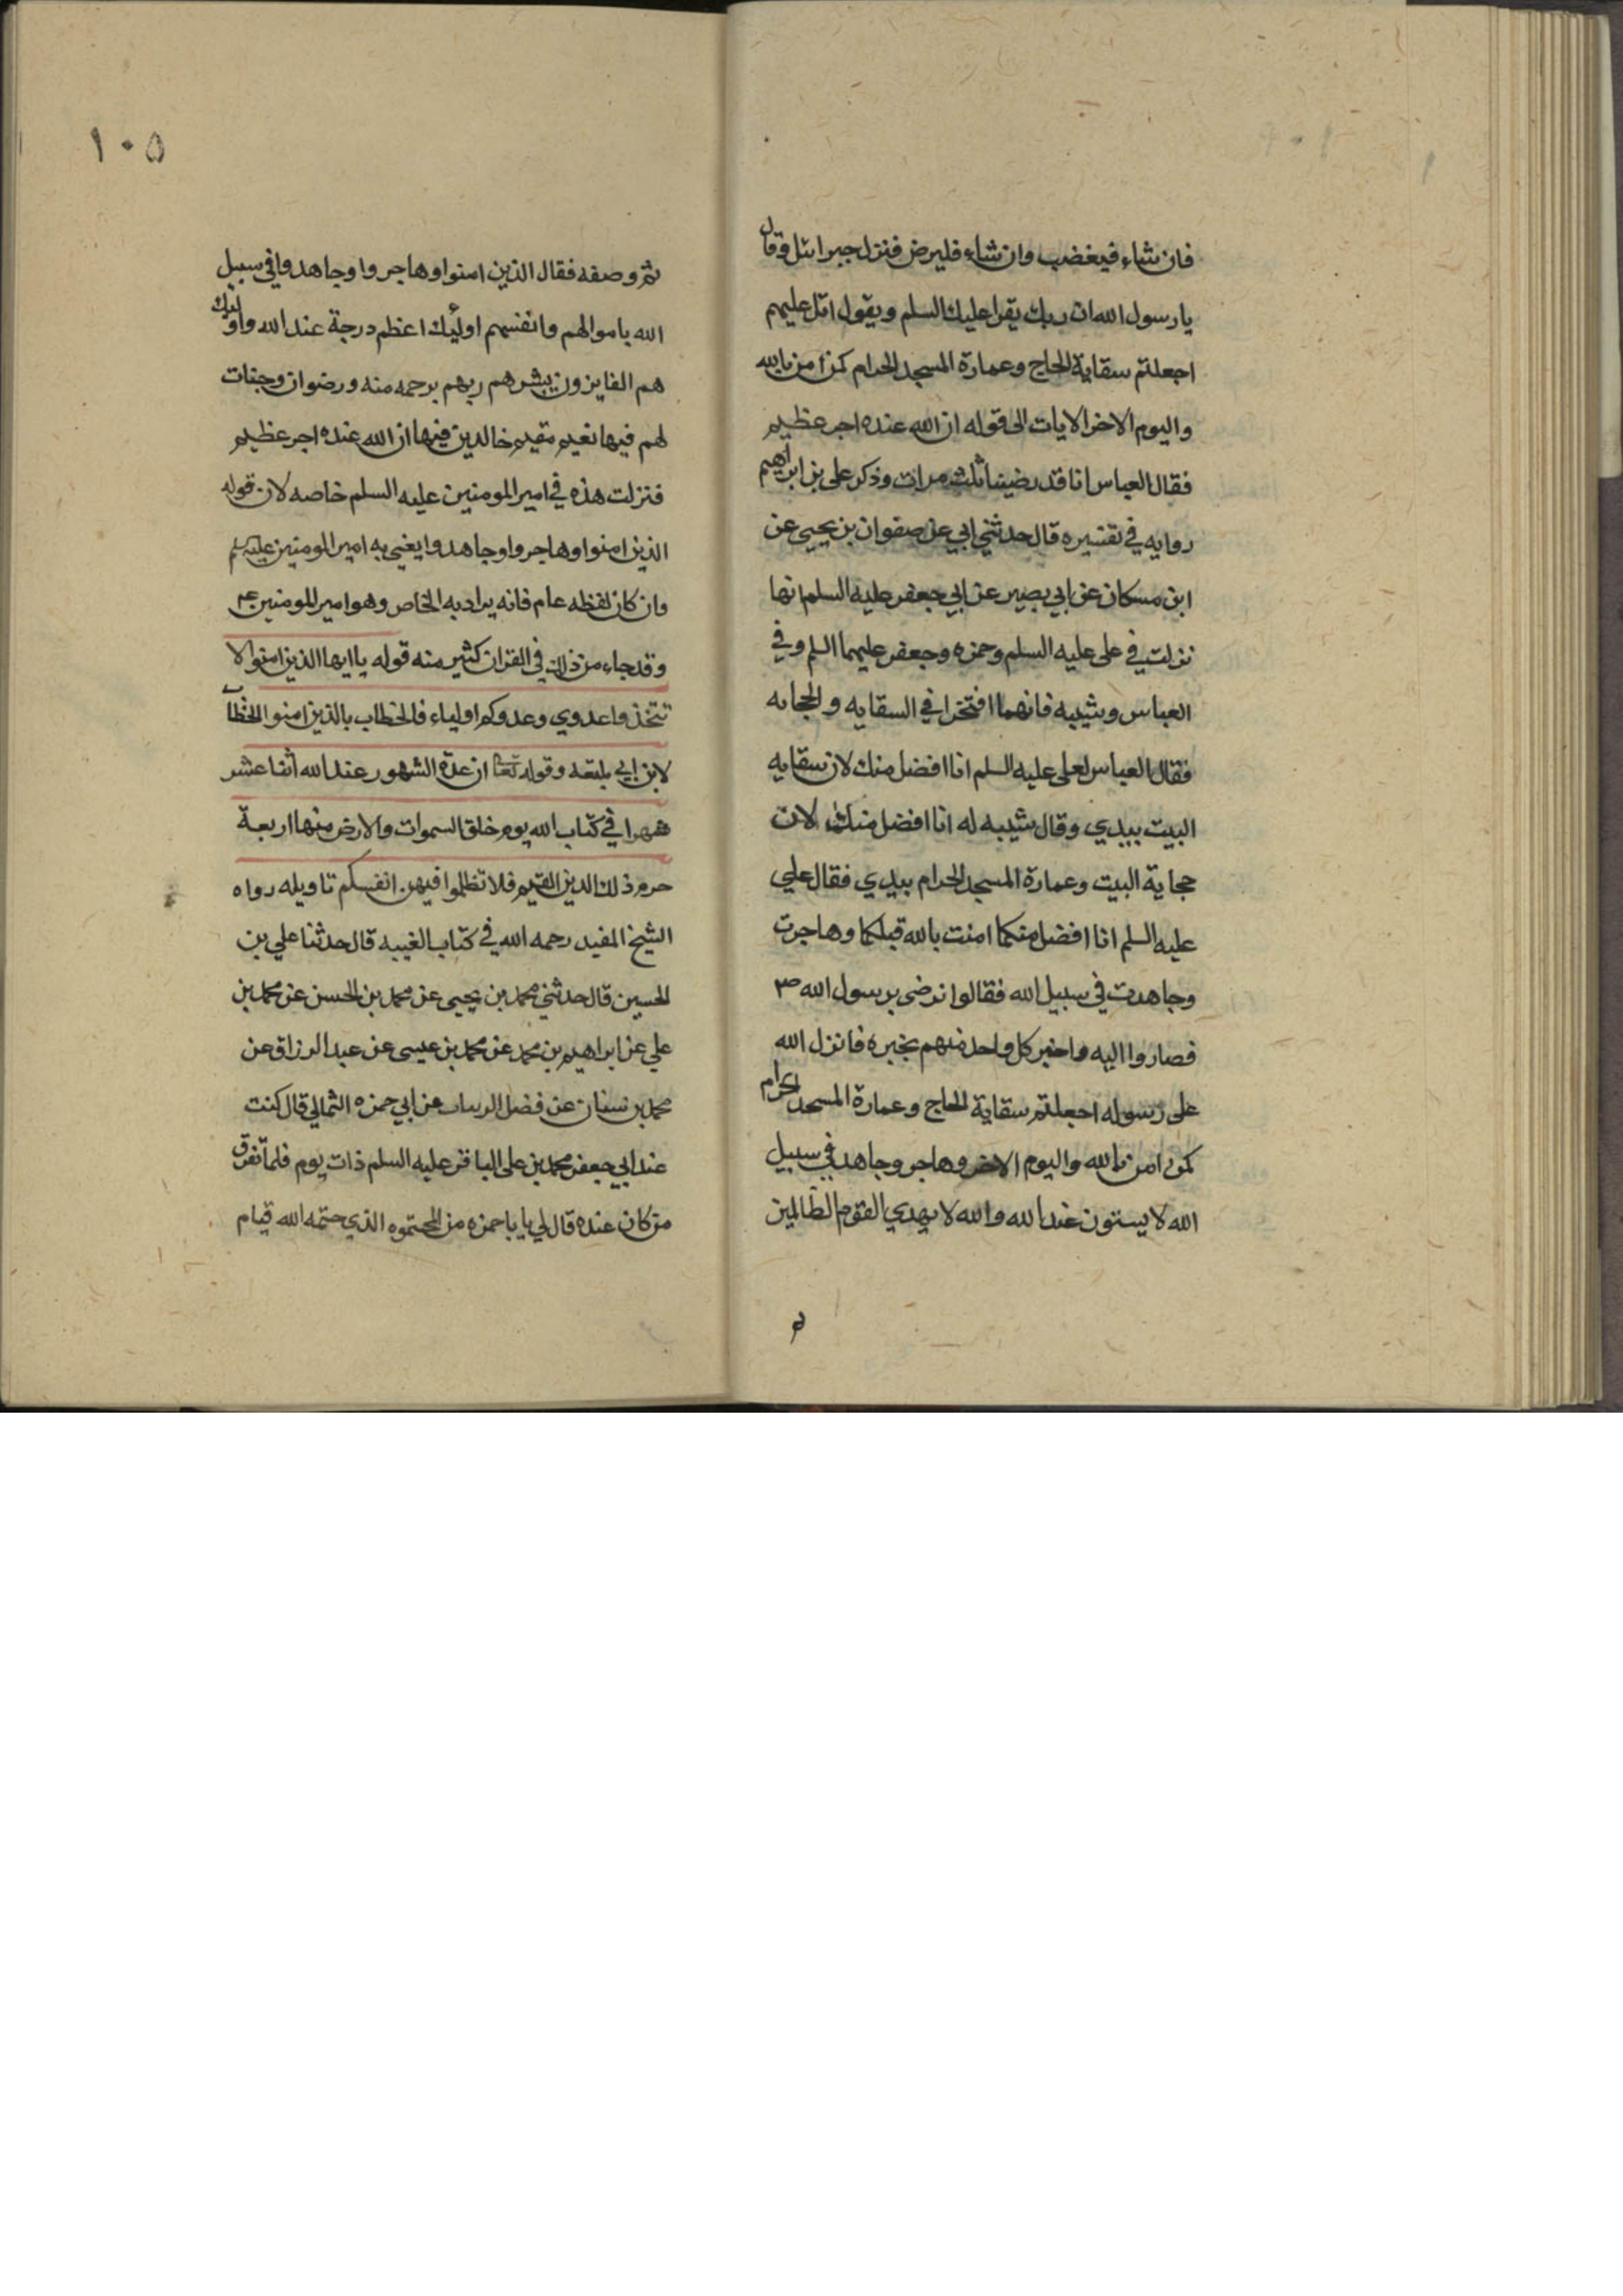 فان شاء فيغضب وان شاء فليرض فنزل جبرائيل وقال
يا رسول الله ان ربك يقرا عليك السلم ويقول اتل عليهم
اجعلتم سقاية الحاج وعمارة المسجد الحرام كمن امن بالله
واليوم الاخر الايات الى قوله ان الله عنده اجر عظيم
فقال العباس انا قد رضينا ثلث مرات وذكر علي بن ابراهيم
روايه في تفسيره قال حدثني ابي عن صفوان بن يحيى عن
ابن مسكان عن ابي بصير عن ابي جعفر عليه السلم انها
نزلت في علي عليه السلم وحمزه وجعفر عليهما السلم وفي
العباس وشيبه فانهما افتخرا في السقايه والحجابه
فقال العباس لعلي عليه السلم انا افضل منك لان سقايه
البيت بيدي وقال شيبه له انا افضل منك لان
حجاية البيت وعمارة المسجد الحرام بيدي فقال علي
عليه السلم انا افضل منكما امنت بالله قبلكما وهاجرت
وجاهدت في سبيل الله فقالوا نرضى برسول الله ص
فصاروا اليه واخبر كل واحد منهم بخبره فانزل الله
على رسوله اجعلتم سقاية الحاج وعمارة المسجد الحرام
كمن امن بالله واليوم الاخر وهاجر وجاهد في سبيل
الله لا يستون عند الله والله لا يهدي القوم الظالمين
١٠٥
ثم وصفه فقال الذين امنوا وهاجروا وجاهدوا في سبيل
الله باموالهم وانفسهم اولئك اعظم درجة عند الله واولئك
هم الفايزون يبشرهم ربهم برحمه منه ورضوان وجنات
لهم فيها نعيم مقيم خالدين فيها ان الله عنده اجر عظيم
فنزلت هذه في امير المومنين عليه السلم خاصه لان قوله
الذين امنوا وهاجروا وجاهدوا يعني به امير المومنين عليه السلم
وان كان لفظه عام فانه يراد به الخاص وهو امير المومنين ع
وقد جاء من ذلك في القران كثير منه قوله يا ايها الذين امنوا لا
تتخذوا عدوي وعدوكم اولياء فالخطاب بالذين امنوا الخطاب
لابن ابي بلتعه وقوله تعالى ان عدة الشهور عند الله اثنا عشر
شهرا في كتاب الله يوم خلق السموات والارض منها اربعة
حرم ذلك الدين القيم فلا تظلموا فيهن انفسكم تاويله رواه
الشيخ المفيد رحمه الله في كتاب الغيبه قال حدثنا علي بن
الحسين قال حدثني محمد بن يحيى عن محمد بن الحسن عن محمد بن
علي عن ابراهيم بن محمد عن محمد بن عيسى عن عبد الرزاق عن
محمد بن سنان عن فضل الرسان عن ابي حمزه الثمالي قال كنت
عند ابي جعفر محمد بن علي الباقر عليه السلم ذات يوم فلما تفرق
من كان عنده قال لي يا باحمزه من المحتوم الذي حتمه الله قيام